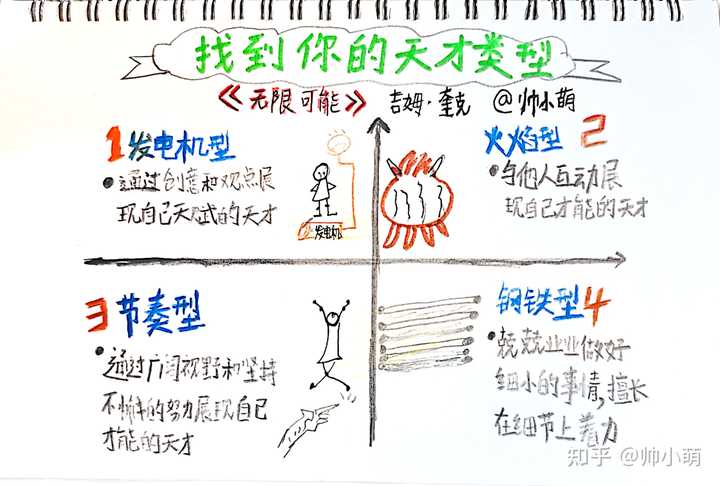 找到你的天才类型
《无限可能》 吉姆·奎克 @帅小萌
1发电机型
●通过创意和观点展
现自己天赋的天才
发电机
火焰型 2
●与他人互动展
现自己才能的天才
3节奏型
●通过广阔视野和坚持
不懈的努力展现自己
才能的天才
钢铁型4
●兢兢业业做好
细小的事情,擅长
在细节上着力
知乎 @帅小萌